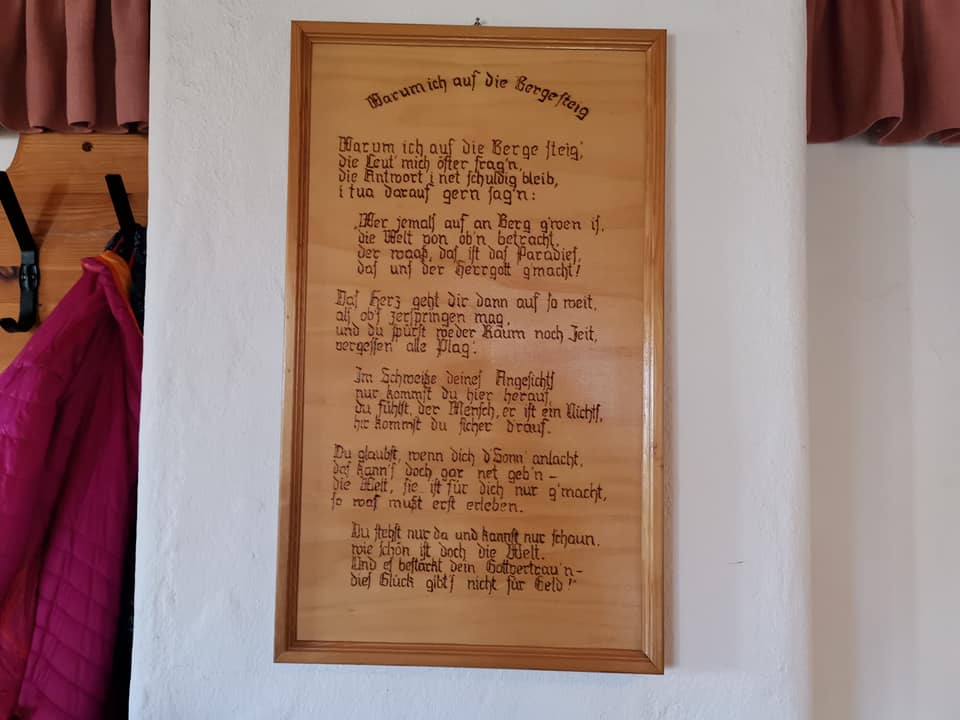 Warum ich auf die Berge steig
Warum ich auf die Berge steig',
die Leut' mich öfter frag'n,
die Antwort i net schuldig bleib,
i tua darauf gern sag'n:
„Wer jemals auf an Berg g'wen is,
die Welt von ob'n betracht,
der waaß, das ist das Paradies,
das uns der Herrgott g'macht!
Das Herz geht dir dann auf so weit,
als ob's zerspringen mag,
und du spürst weder Raum noch Zeit,
vergessen alle Plag'.
Im Schweiße deines Angesichts
nur kommst du hier herauf,
du fühlst, der Mensch, er ist ein Nichts,
hir kommst du sicher d'rauf.
Du glaubst, wenn dich d'Sonn' anlacht,
das kann's doch gar net geb'n –
die Welt, sie ist für dich nur g'macht,
so was mußt erst erleben.
Du stehst nur da und kannst nur schaun,
wie schön ist doch die Welt.
Und es bestärkt dein Gottvertrau'n –
dies Glück gibt's nicht für Geld!"